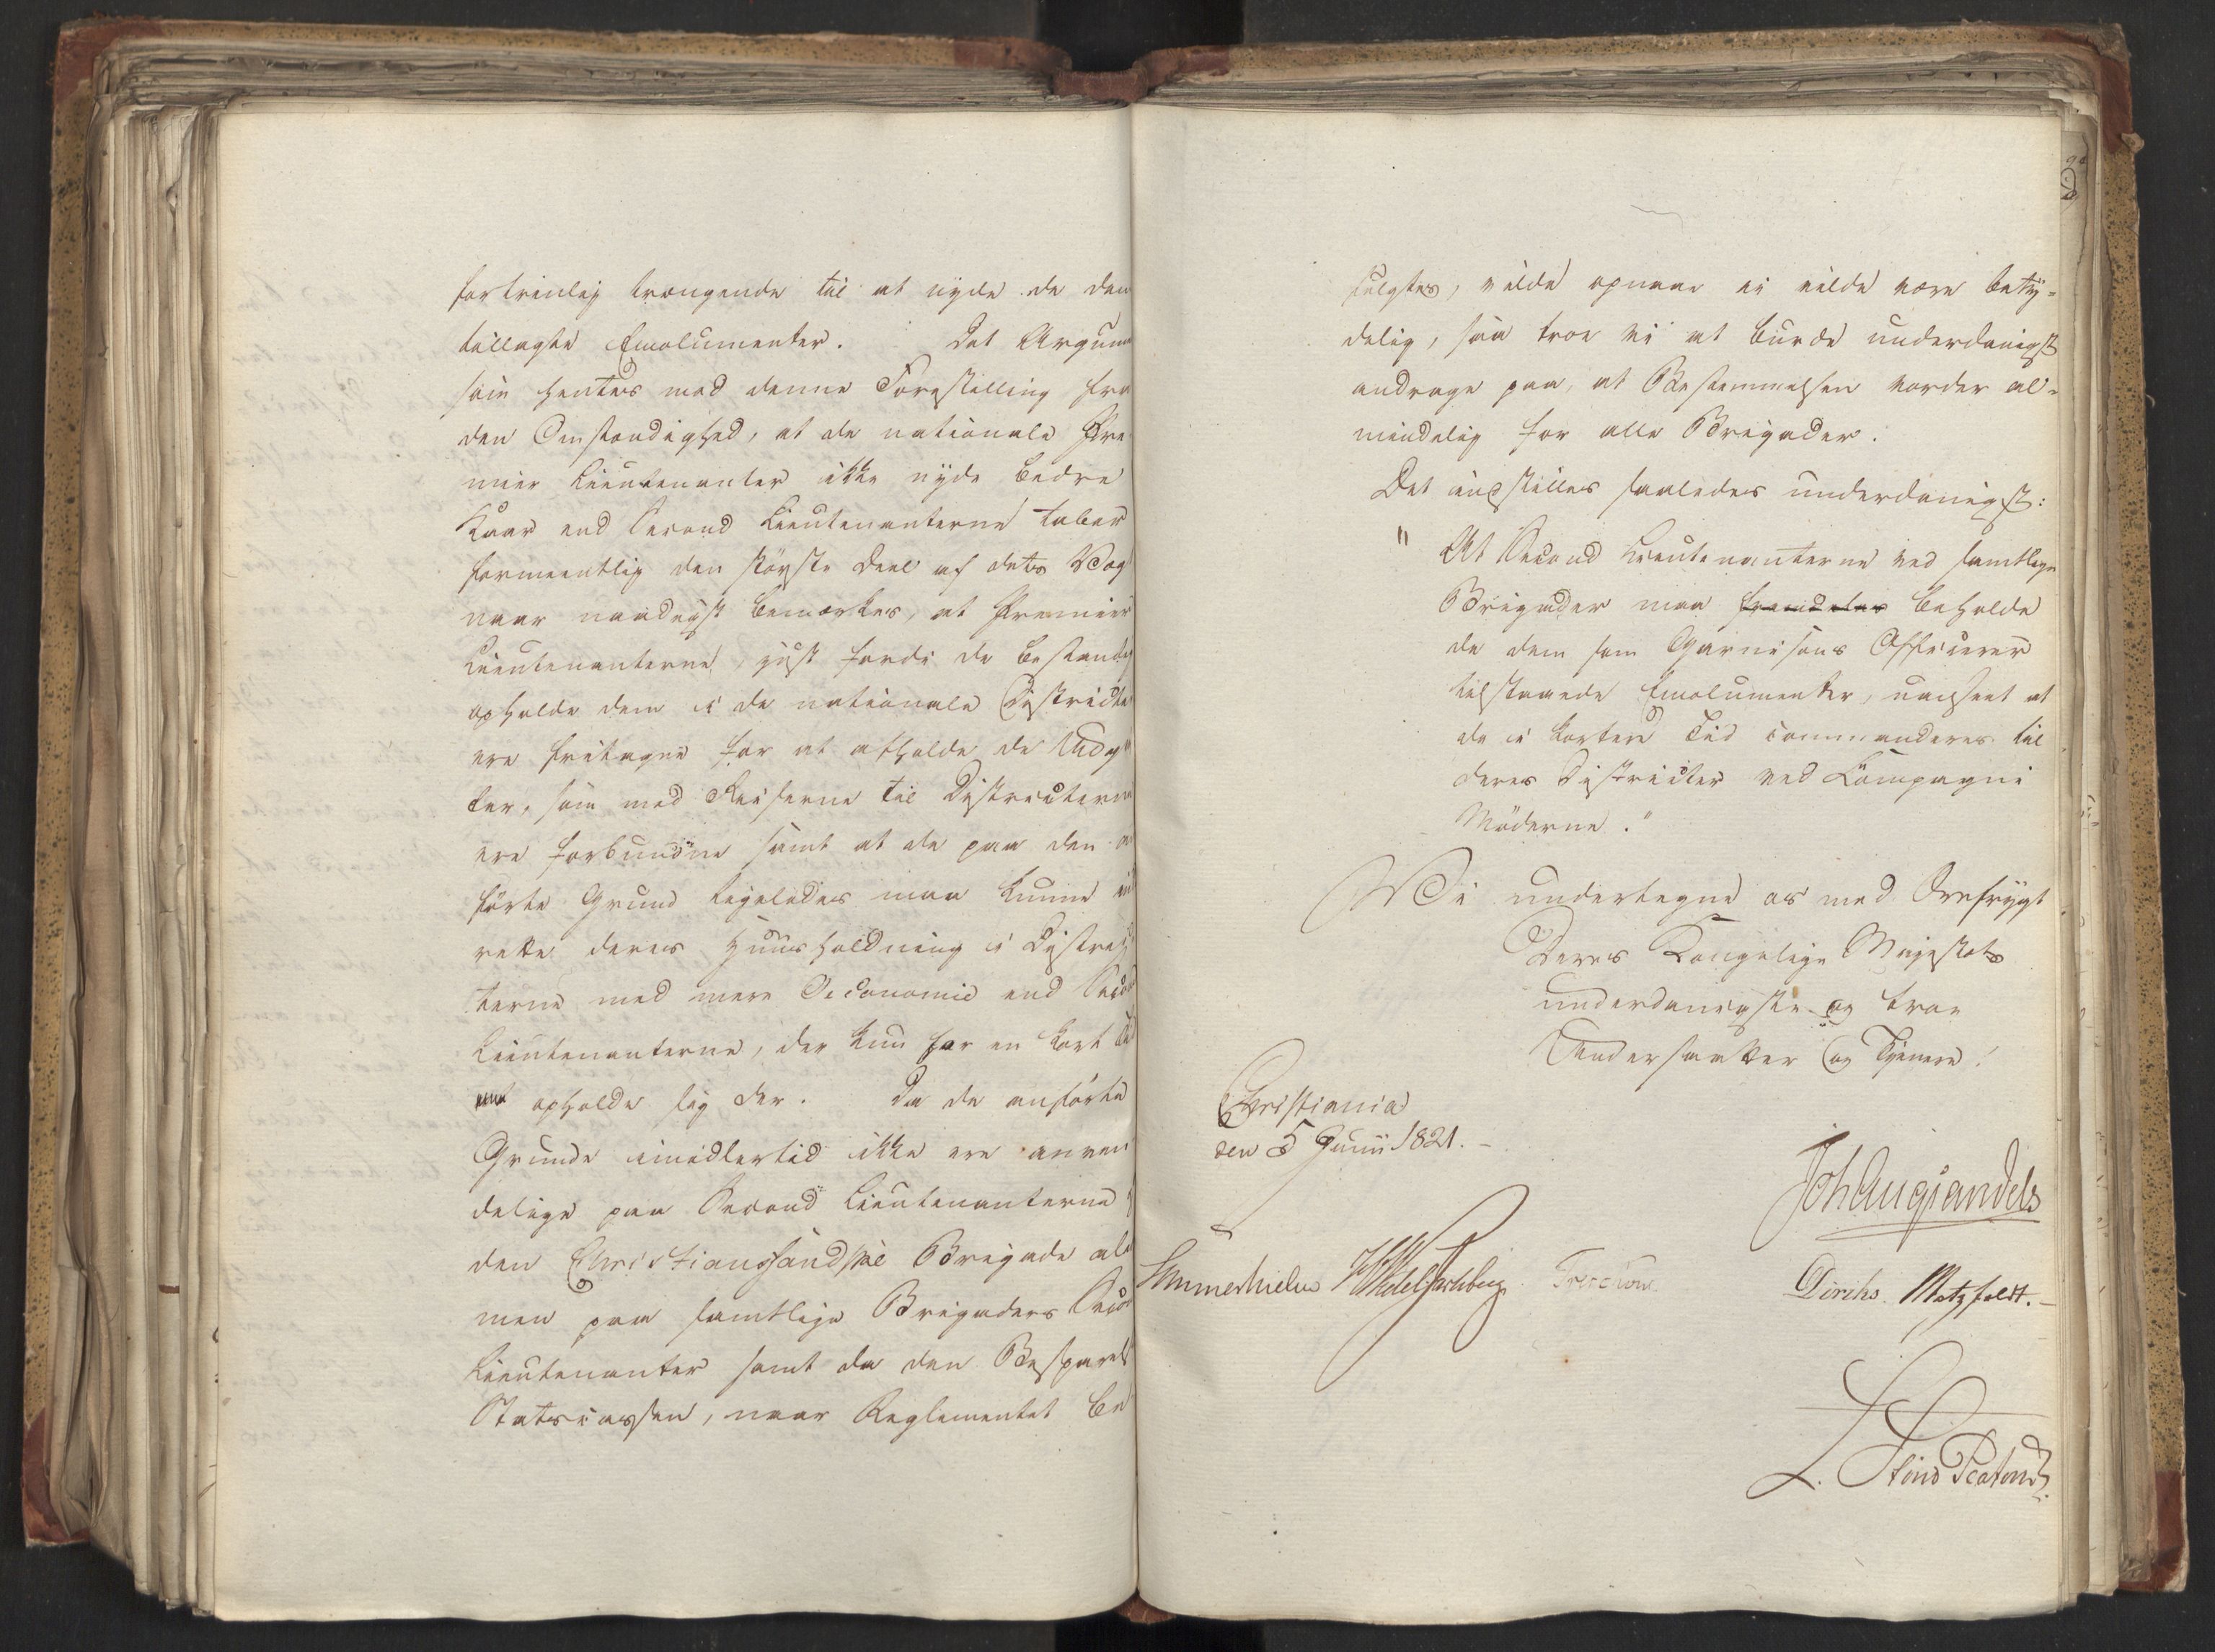 fortrinlig trængende til at nyde de dem
tillagte Emolumenter. Det Argum
som hentes med denne Forestilling fra
den Omstændighed, at de nationale Pre
mier Lieutenanter ikke nyde bedre
Kaar end Second Lieutenanterne taber
formeentlig den største Deel af dets Væg
naar naadigst bemærkes, at Premier
Lieutenanterne, just fordi de bestandig
opholde dem i de nationale Districter
ere fritagne for at afholde de Udgif
ter, som med Reiserne til Districterne
ere forbundne samt at de paa den an
førte Grund ligeledes maa kunne ind
rette deres Huusholdning i Distric
terne med mere Oeconomie end Second
Lieutenanterne, der kun for en kort Tid
opholde sig der. Da de anførte
Grunde imidlertid ikke ere anven
delige paa Second Lieutenanterne i
den Christianssandske Brigade ale
men paa samtlige Brigaders Secon
Lieutenanter samt da den Besparels
Statscassen, naar Reglementet be
fulgtes, vilde opnaae ei vilde være bety=
delig, saa troe vi at burde underdanigst
andrage paa, at Bestemmelsen vorder al=
mindelig for alle Brigader.
Det indstilles saaledes underdanigst:
"At Second Lieutenanterne ved samtlige
Brigader maa fremdeles beholde
de dem som Garnisons Officerer
tilstaaede Emolumenter, uanseet at
de i kortere Tid commanderes til
deres Districter ved Compagni
Møderne."
Vi undertegne os med Ærefrygt
Deres Kongelige Majestæts
underdanigste og troe
Undersaatter og Tjenere!
Christiania
den 5 Junii 1821.
Joh Aug Sandels
Sommerhielm Treschow Diriks. Motzfeldt.
L. Stoud Platou